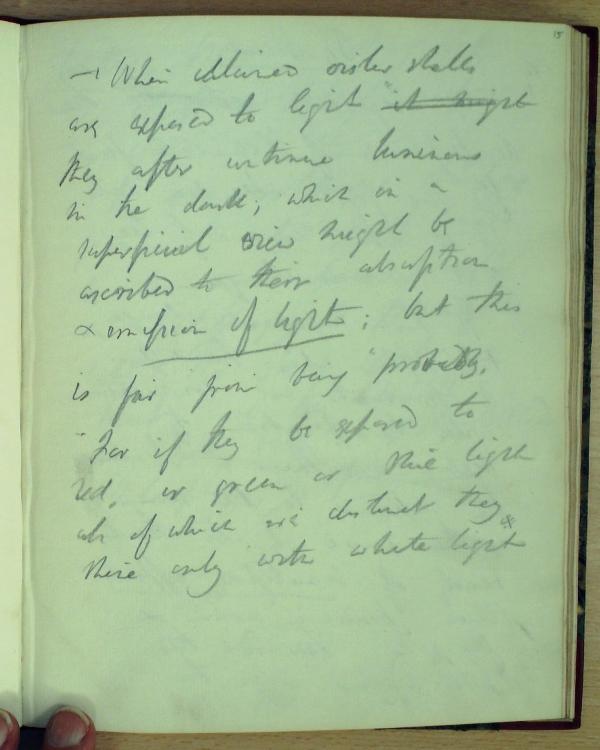 15
– When calcined oister shells
are exposed to light it might
they after continue luminous
in the dark; which in a
superficial view might be
ascribed to their absorption
& omission of light; but this
is far from being probable.
For if they be exposed to
red, or green or blue light
all of which are distinct they
shine only with white light